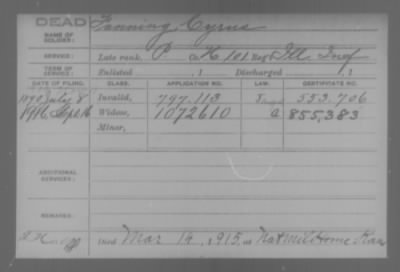 DEAD
NAME OF SOLDIER: Fanning Cyrus
SERVICE: Late rank, P Co. H, 101 Reg't Ill. Inf
TERM OF SERVICE: Enlisted , 1 Discharged , 1
DATE OF FILING. CLASS. APPLICATION NO. LAW. CERTIFICATE NO.
1890 July 8 Invalid, 797.113 553.706
1916, Sept. 16 Widow, 1072610 a 855,383
Minor,
ADDITIONAL SERVICES:
REMARKS:
Died Mar 14, 1915, at Nat Mil Home Kan